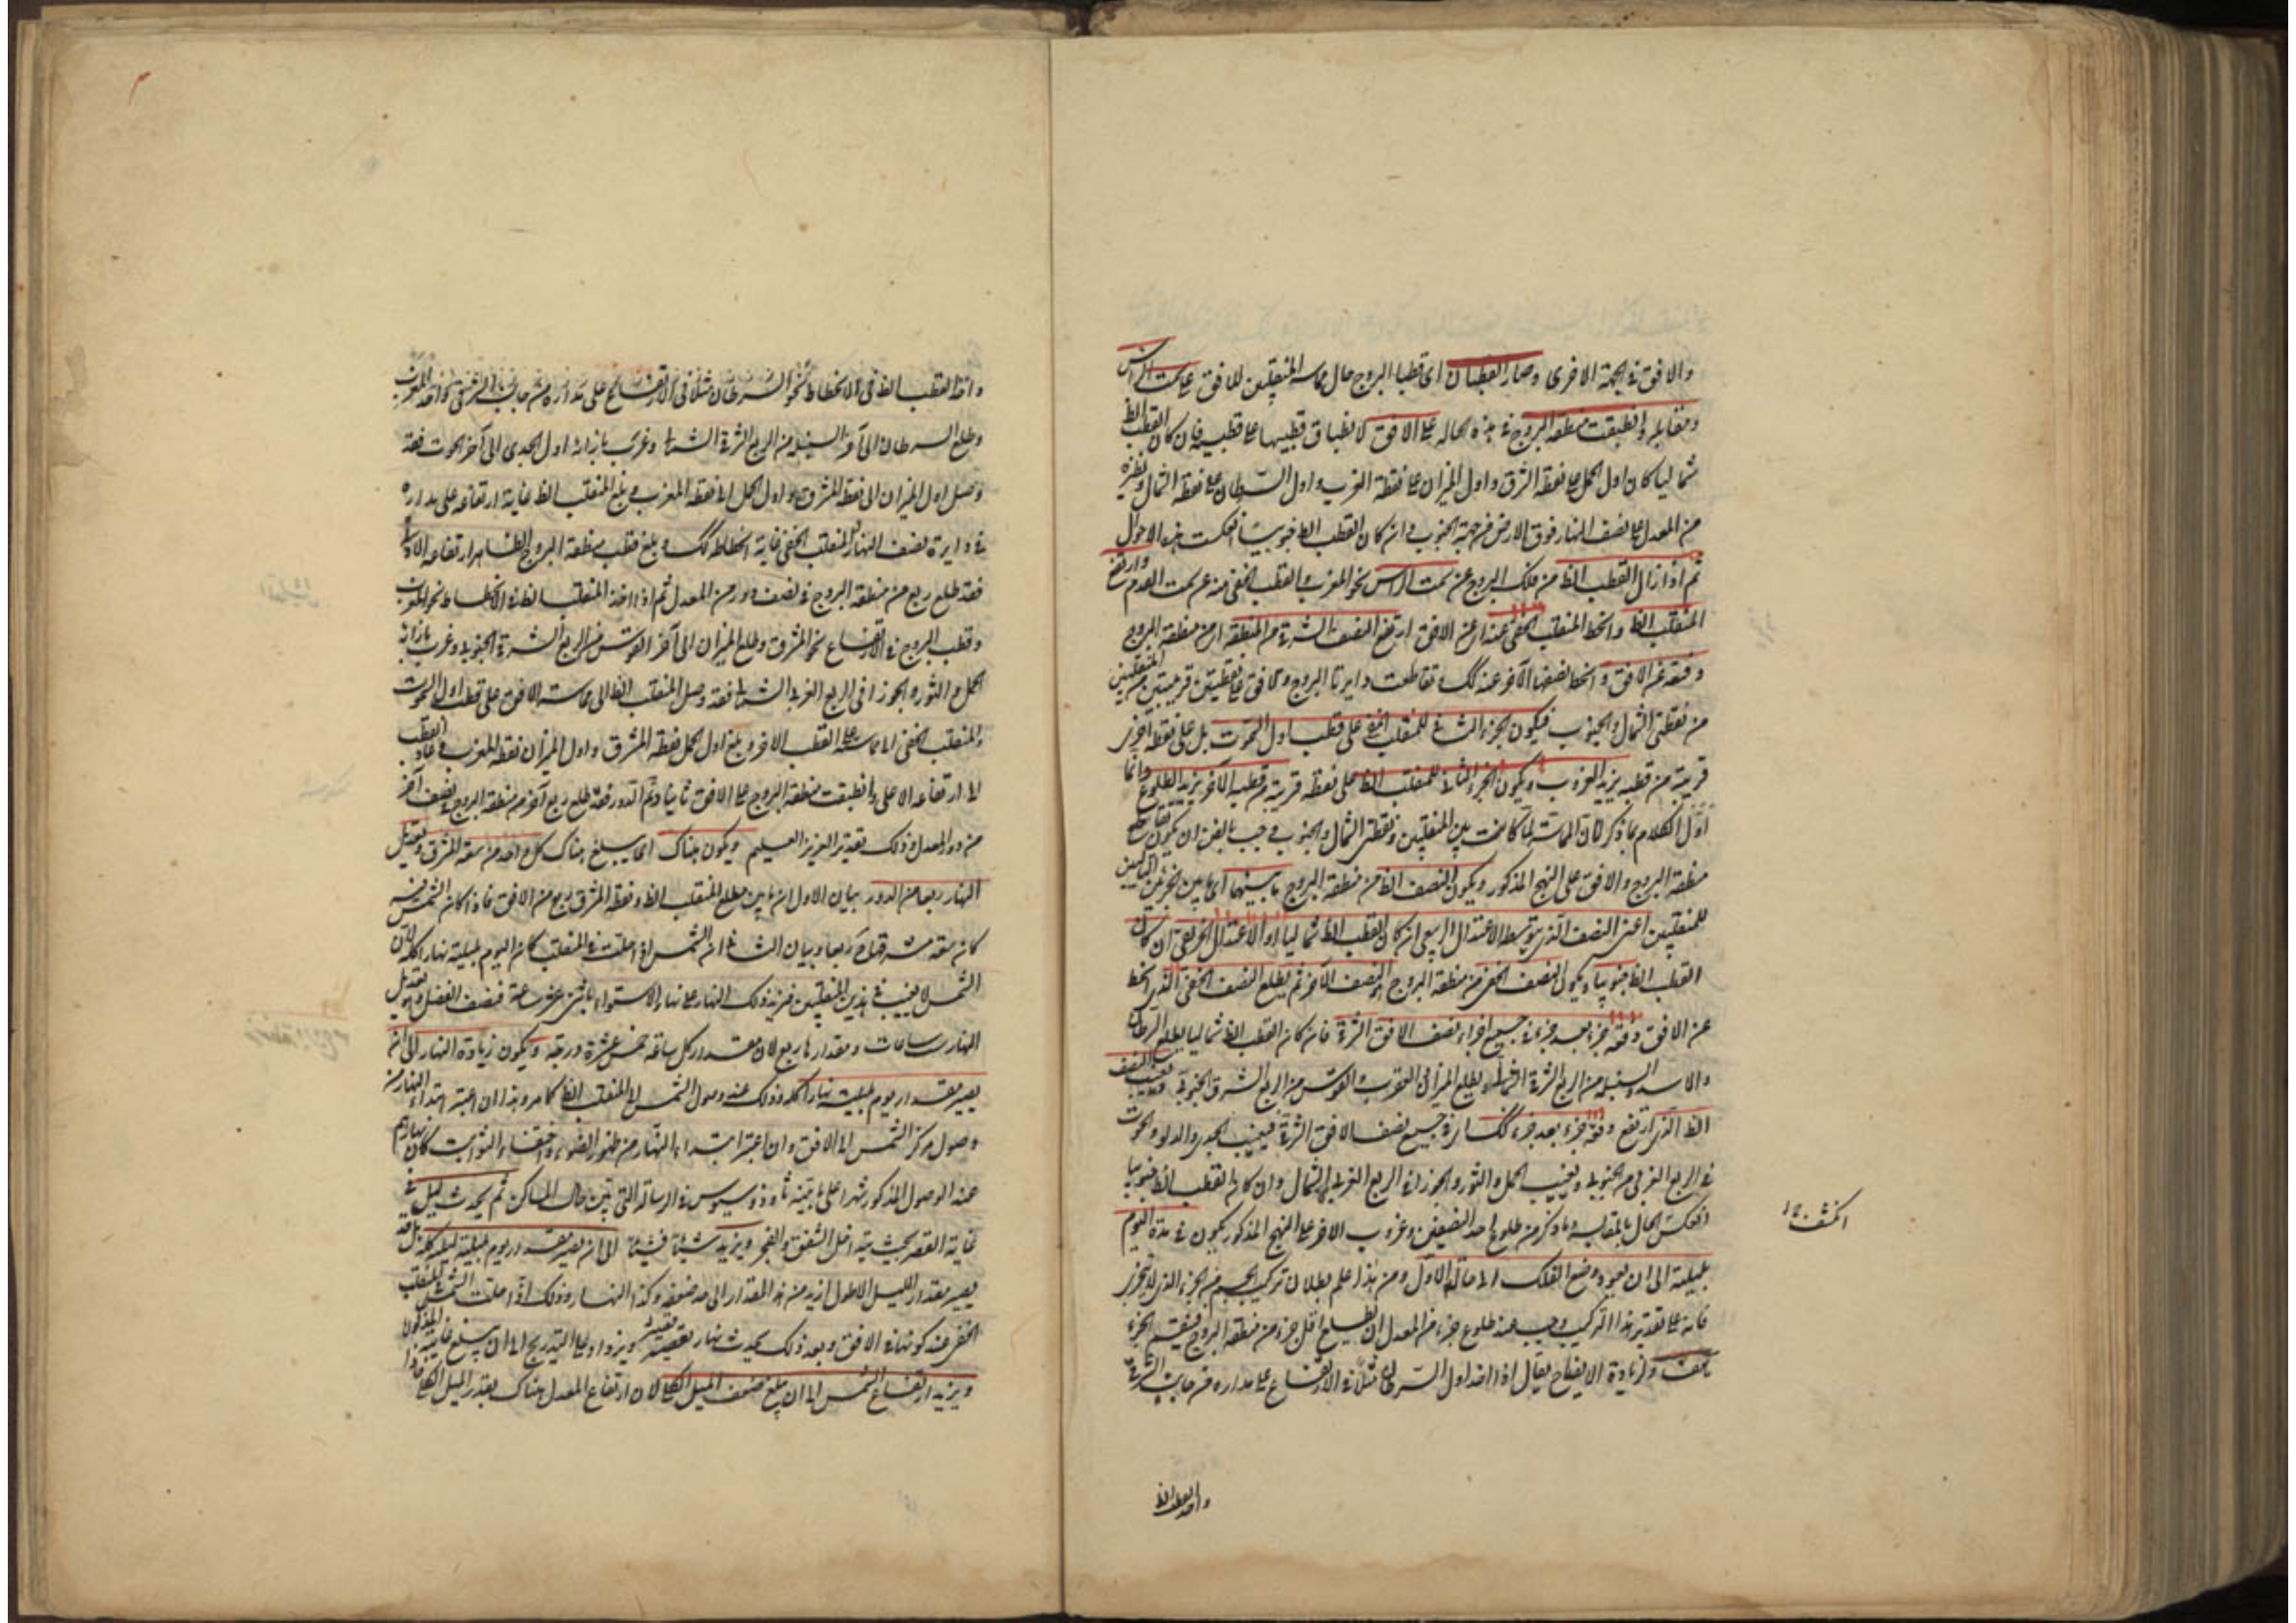 والافق فى الجهة الاخرى وصار القطبان اى قطبا البروج حال مماسة المنقلبين للافق على سمت الراس
ومقابله وانطبقت منطقة البروج فى هذه الحالة على الافق لانطباق قطبيها على قطبيه فان كان القطب الظ
شماليا كان اول الحمل على نقطة الشرق واول الميزان على نقطة الغرب واول السرطان على نقطة الشمال ونظيره
من المعدل على نصف النهار فوق الارض من جهة الجنوب وان كان القطب الظ جنوبيا انعكست هذه الاحوال
ثم اذا زال القطب الظ من فلك البروج عن سمت الراس نحو المغرب والقطب الخفى عنه عن سمت القدم وارتفع
المنقلب الظ وانحط المنقلب الخفى عنه اى عن الافق ارتفع النصف الشرقى من المنطقة اى من منطقة البروج
دفعة عن الافق وانحط نصفها الآخر عنه كك وتقاطعت دايرتا البروج والافق على نقطتين قريبتين من المنقلبين
من نقطتى الشمال والجنوب فيكون الجزء التالى للمنقلب الخفى على قطب اول السموت بل على نقطة اخرى
قريبة من قطبه يريد الغروب ويكون الجزء التالى للمنقلب الظ على نقطة قريبة من قطبه الآخر يريد الطلوع وانما
اول الكلام بما ذكر لان المماسة لما كانت بين المنقلبين ونقطتى الشمال والجنوب وجب بالضرورة ان يكون تقاطع
منطقة البروج والافق على النهج المذكور ويكون النصف الظ من منطقة البروج ما بينهما اى ما بين الجزئين التاليين
للمنقلبين اعنى النصف الذى يتوسطه الاعتدال الربيعى ان كان القطب الظ شماليا او الاعتدال الخريفى ان كان
القطب الظ جنوبيا ويكون النصف الخفى من منطقة البروج النصف الآخر ثم يطلع النصف الخفى الذى انحط
عن الافق دفعة جزء بعد جزء فى جميع اجزاء نصف الافق الشرقى فان كان القطب الظ شماليا يطلع السرطان
والاسد والسنبلة من الربع الشرقى الشمالى ويطلع الميزان والعقرب والقوس من الربع الشرقى الجنوبى ويغيب النصف
الظ الذى ارتفع دفعة جزء بعد جزء كك فى جميع نصف الافق الغربى فيغيب الجدى والدلو والحوت
فى الربع الغربى الجنوبى ويغيب الحمل والثور والجوزاء فى الربع الغربى الشمالى وان كان القطب الظ جنوبيا
انعكس الحال بالمقايسة وما ذكر من طلوع احد النصفين وغروب الآخر على النهج المذكور يكون فى مدة اليوم
بليلته الى ان يعود وضع الفلك الى حاله الاول ومن هذا علم بطلان تركيب الجسم من الجزء الذى لا يتجزى
فانه على تقدير هذا التركيب وجب عند طلوع جزء من المعدل ان يطلع اقل جزء من منطقة البروج فينقسم الجزء
هف ولزيادة الايضاح يقال اذا اخذ اول السرطان مثلا فى الارتفاع على مداره من جانب الشرق
واخذ القطب الظ
انكسف
واخذ القطب الظ فى الانحطاط نحو
وطلع السرطان الى آخر السنبلة من الربع الشرقى الشمالى وغرب بازائه اول الجدى الى آخر الحوت فقد
وصل اول الميزان الى نقطة المشرق واول الحمل الى نقطة المغرب وبلغ المنقلب الظ غاية ارتفاعه على مداره
فى دايرة نصف النهار والمنقلب الخفى غاية انحطاطه كك وبلغ قطب منطقة البروج الظاهر ارتفاعه الادنى
فقد طلع ربع من منطقة البروج فى نصف دور من المعدل ثم اذا اخذ المنقلب الظ فى الانحطاط نحو المغرب
وقطب البروج فى الارتفاع نحو المشرق وطلع الميزان الى آخر القوس من الربع الشرقى الجنوبى وغرب بازائه
الحمل والثور والجوزا فى الربع الغربى الشمالى فقد وصل المنقلب الظ الى مماسة الافق على قطب اول السموت
والمنقلب الخفى الى مماسته على القطب الآخر وبلغ اول الحمل نقطة المشرق واول الميزان نقطة المغرب وعاد القطب
الى ارتفاعه الاعلى وانطبقت منطقة البروج على الافق ثانيا وتم الدور فقد طلع ربع آخر من منطقة البروج فى نصف آخر
من دور المعدل وذلك تقدير العزيز العليم ويكون هناك اى يبلغ هناك كل واحد من سعة المشرق وتعديل
النهار ربعا من الدور بيان الاول ان ما بين مطلع المنقلب الظ ونقطة المشرق ربع من الافق فاذا كان الشمس فيه
كانت سعة مشرقها ربعا وبيان الثانى ان الشمس اذا حلت فى المنقلب كان اليوم بليلته نهارا كله لان
الشمس لا يغيب فى هذين المنقلبين فيزيد ذلك النهار على نهار الاستواء باثنى عشرة ساعة فنصف الفضل وهو تعديل
النهار ست ساعات ومقدارها ربع لان مقدار كل ساعة خمس عشرة درجة ويكون زيادة النهار الى ان
يصير مقدار يوم بليلته نهارا كله وذلك عند وصول الشمس الى المنقلب الظ كما مر وهذا ان اعتبر ابتداء النهار من
وصول مركز الشمس الى الافق وان اعتبر ابتداء النهار من ظهور الضوء واختفاء الثوابت كان نهارهم
عند الوصول المذكور شهرا على ما بينه ثاوذوسيوس فى الرسالة التى بين حال المساكن ثم يحدث ليل فى
غاية القصر بحيث يتداخل الشفق والفجر ويزيد شيئا فشيئا الى ان يصير مقدار يوم بليلته ليلا كله بل قد
يصير مقدار الليل الاطول ازيد من هذا المقدار الى حد ضعفه وكذا النهار وذلك اذا حلت الشمس المنقلب
الخفى عند كونها فى الافق وبعد ذلك يحدث نهار قصير ويزداد على التدريج الى ان يبلغ غايته المذكورة
ويزيد ارتفاع الشمس الى ان يبلغ ضعف الميل الكلى لان ارتفاع المعدل هناك بقدر الميل الكلى فاذا